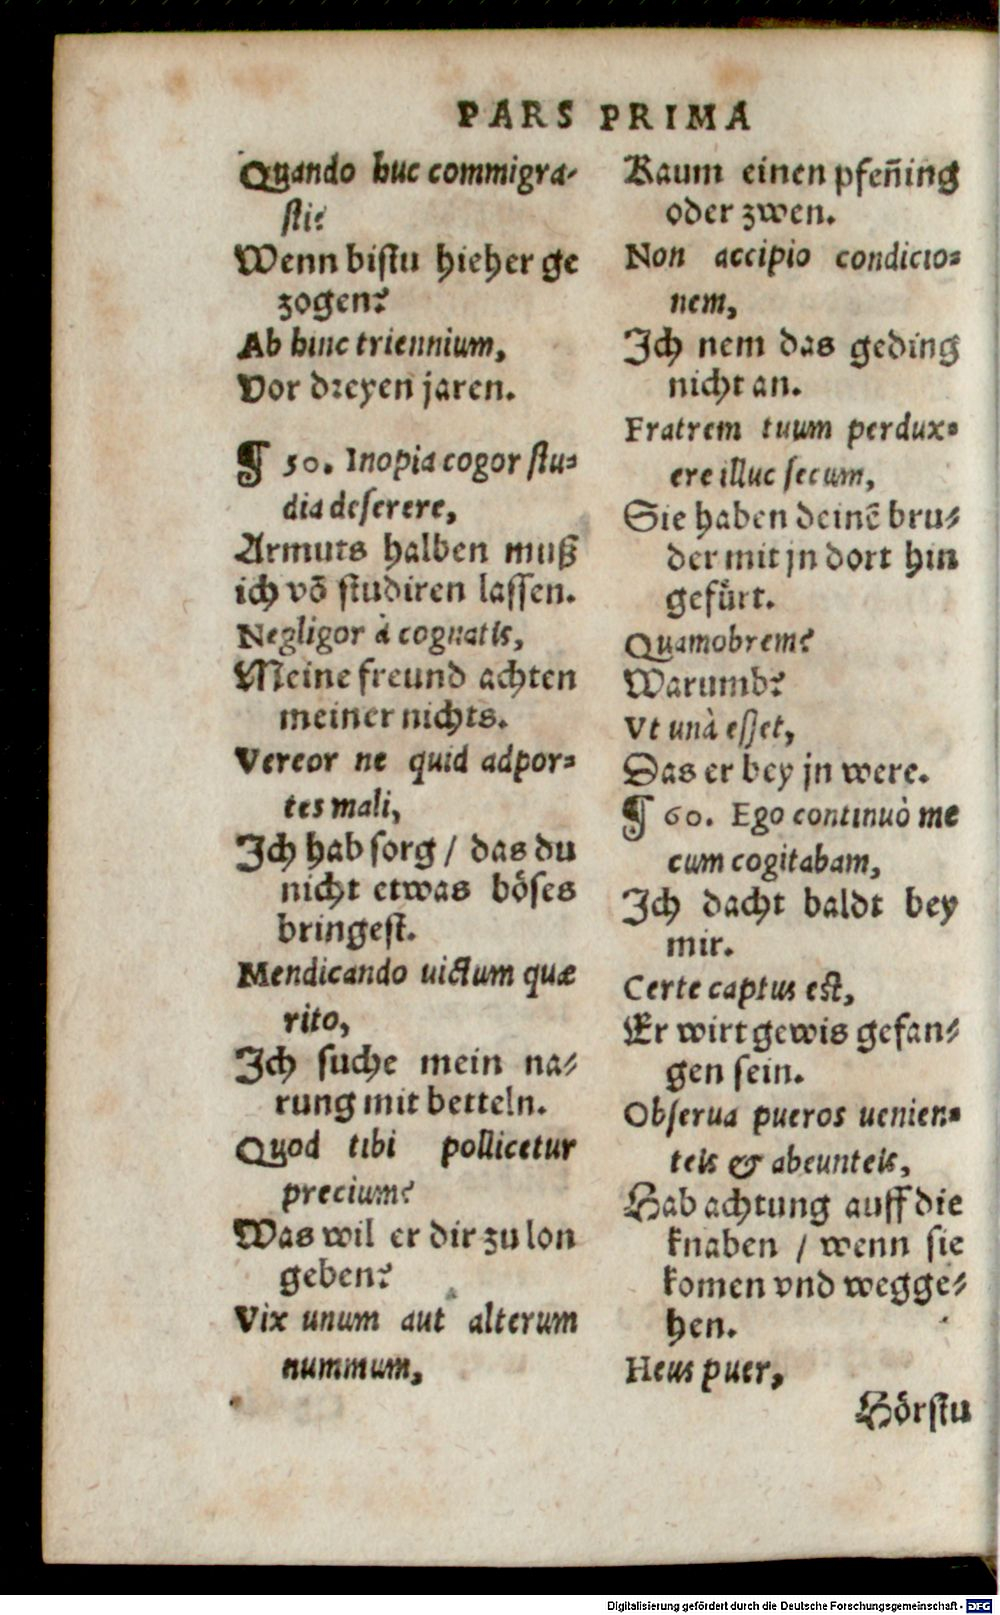 PARS PRIMA
Quando huc commigra-
ſti?
Wenn biſtu hieher ge
zogen?
Ab hinc triennium,
Vor dreyen jaren.
¶ 50. Inopia cogor ſtu-
dia deſerere,
Armuts halben muß
ich vō ſtudiren laſſen.
Negligor à cognatis,
Meine freund achten
meiner nichts.
Vereor ne quid adpor-
tes mali,
Ich hab ſorg / das du
nicht etwas böſes
bringeſt.
Mendicando uictum quæ
rito,
Ich ſuche mein na-
rung mit betteln.
Quod tibi pollicetur
precium?
Was wil er dir zu lon
geben?
Vix unum aut alterum
nummum,
Kaum einen pfen̄ing
oder zwen.
Non accipio condicio-
nem,
Ich nem das geding
nicht an.
Fratrem tuum perdux-
ere illuc ſecum,
Sie haben deinē bru-
der mit jn dort hin
gefürt.
Quamobrem?
Warumb?
Vt unà eſſet,
Das er bey jn were.
¶ 60. Ego continuò me
cum cogitabam,
Ich dacht baldt bey
mir.
Certe captus eſt,
Er wirt gewis gefan-
gen ſein.
Obſerua pueros uenien-
teis & abeunteis,
Hab achtung auff die
knaben / wenn ſie
komen vnd wegge-
hen.
Heus puer,
Hörſtu
Digitalisierung gefördert durch die Deutsche Forschungsgemeinschaft - DFG